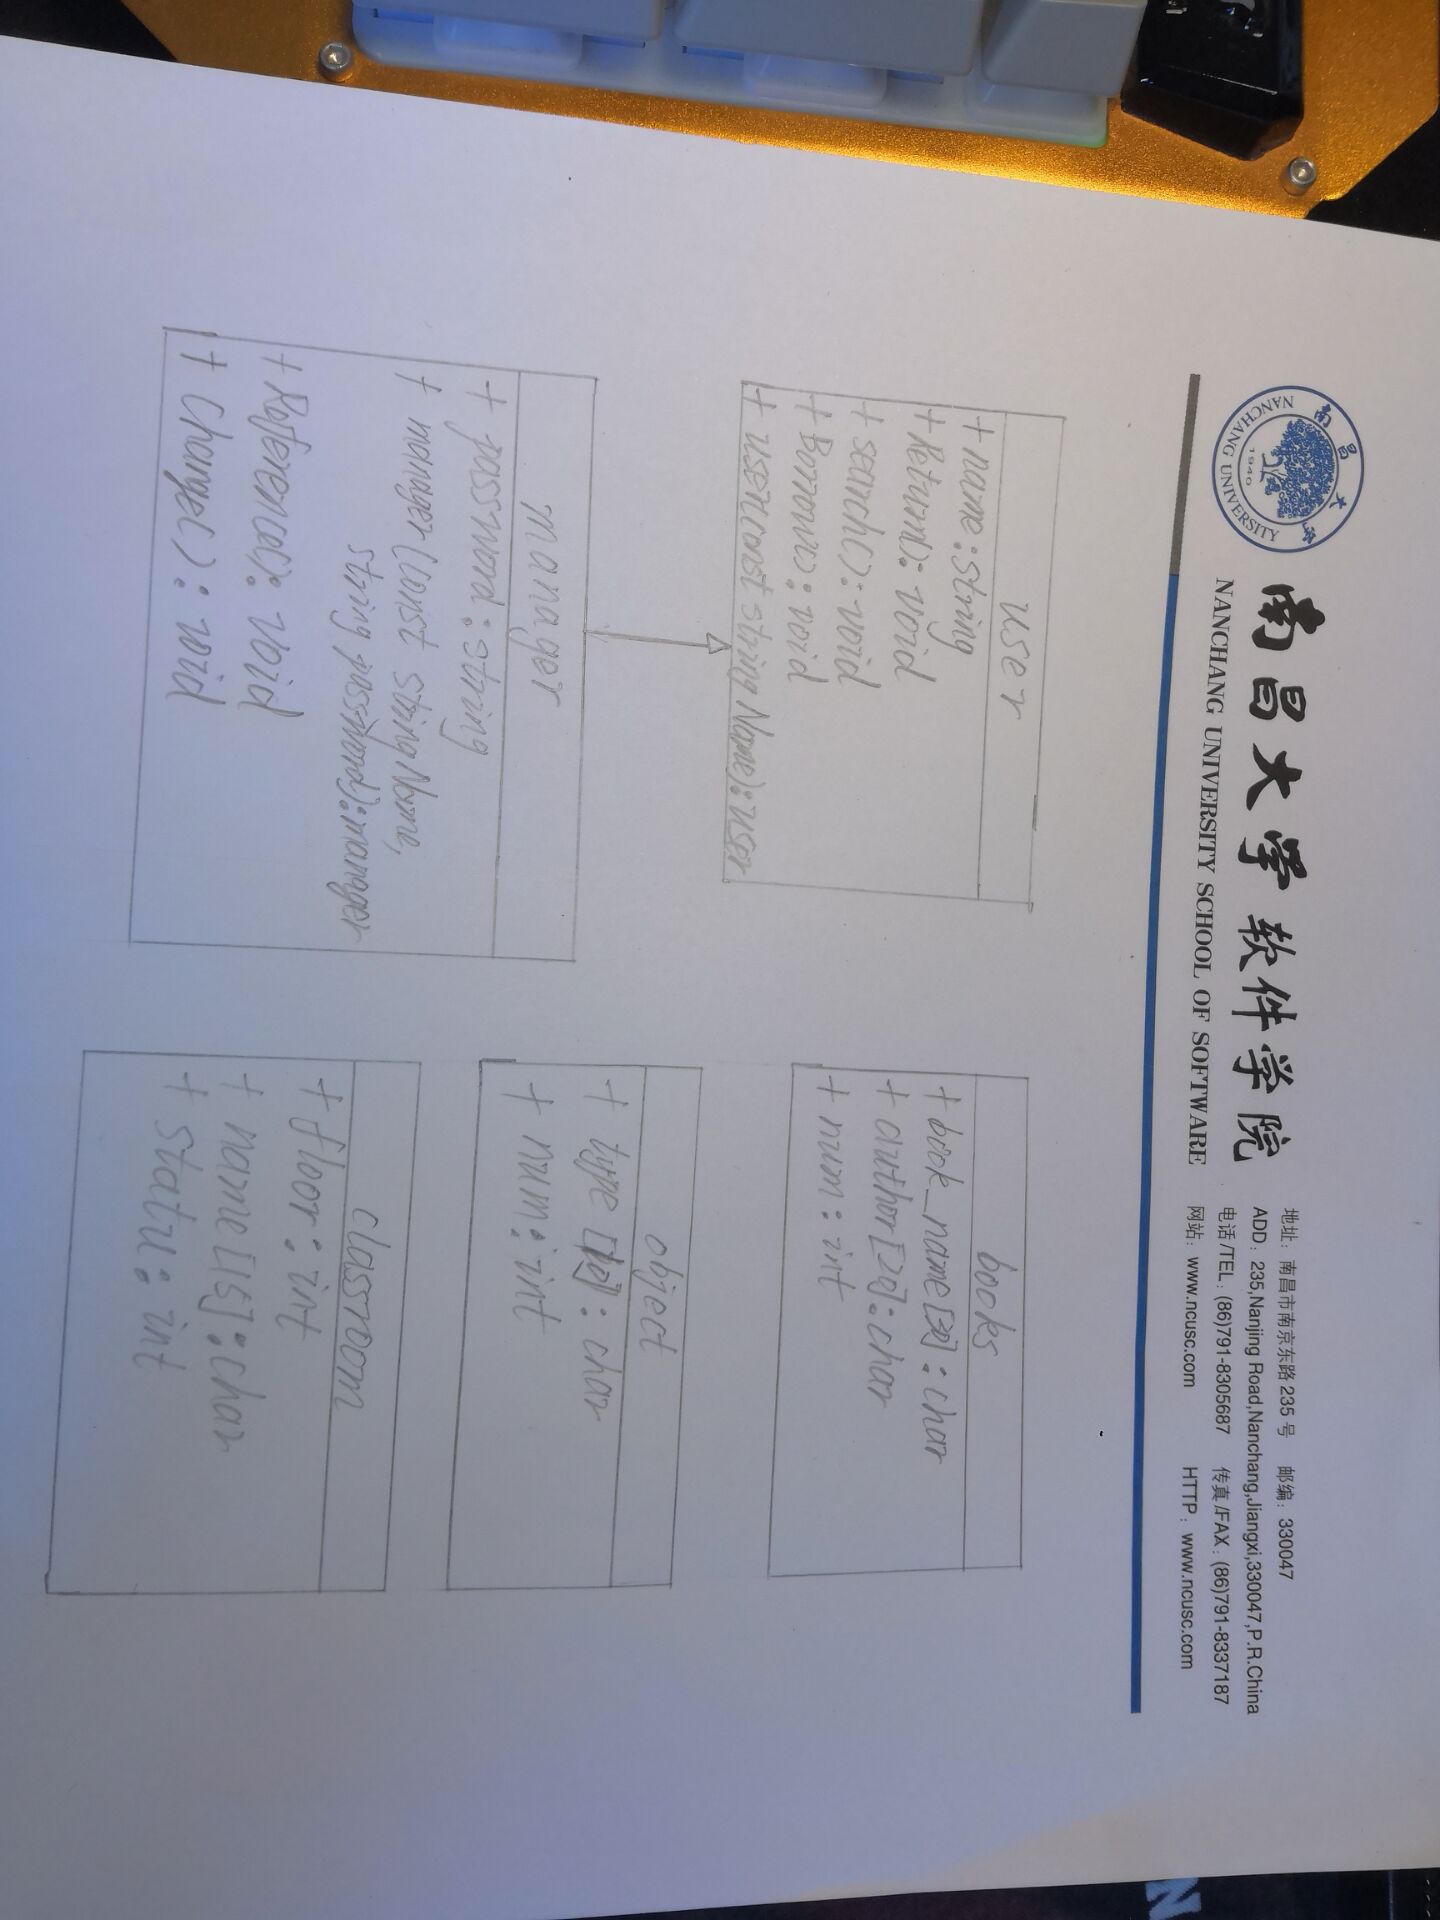 南昌大学软件学院
NANCHANG UNIVERSITY SCHOOL OF SOFTWARE
南昌大学
NANCHANG UNIVERSITY
1940
地址：南昌市南京东路 235 号 邮编：330047
ADD：235,Nanjing Road,Nanchang,Jiangxi,330047,P.R.China
电话/TEL：(86)791-8305687 传真/FAX：(86)791-8337187
网站：www.ncusc.com HTTP：www.ncusc.com
user
+ name:string
+ Return():void
+ search():void
+ Borrow():void
+ user(const string Name):user
manager
+ password:string
+ manager(const string Name,
string password):manager
+ Reference():void
+ Change():void
books
+ book_name[30]:char
+ author[20]:char
+ num:int
object
+ type :char
+ num:int
classroom
+ floor:int
+ name[15]:char
+ statu:int
N